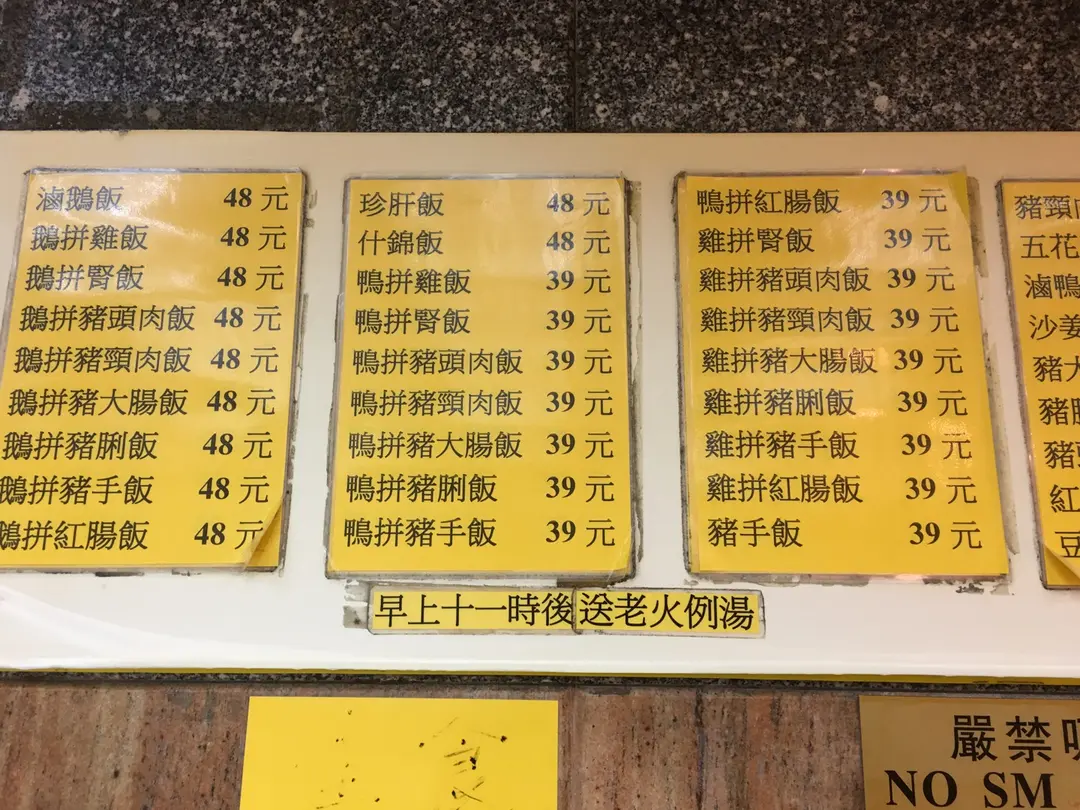 滷鵝飯 48 元
鵝拼雞飯 48 元
鵝拼腎飯 48 元
鵝拼豬頭肉飯 48 元
鵝拼豬頸肉飯 48 元
鵝拼豬大腸飯 48 元
鵝拼豬脷飯 48 元
鵝拼豬手飯 48 元
鵝拼紅腸飯 48 元
珍肝飯 48 元
什錦飯 48 元
鴨拼雞飯 39 元
鴨拼腎飯 39 元
鴨拼豬頭肉飯 39 元
鴨拼豬頸肉飯 39 元
鴨拼豬大腸飯 39 元
鴨拼豬脷飯 39 元
鴨拼豬手飯 39 元
鴨拼紅腸飯 39 元
雞拼腎飯 39 元
雞拼豬頭肉飯 39 元
雞拼豬頸肉飯 39 元
雞拼豬大腸飯 39 元
雞拼豬脷飯 39 元
雞拼豬手飯 39 元
雞拼紅腸飯 39 元
豬手飯 39 元
豬頸
五花
滷鴨
沙姜
豬大
豬
豬
紅
豆
早上十一時後送老火例湯
嚴禁
NO SM